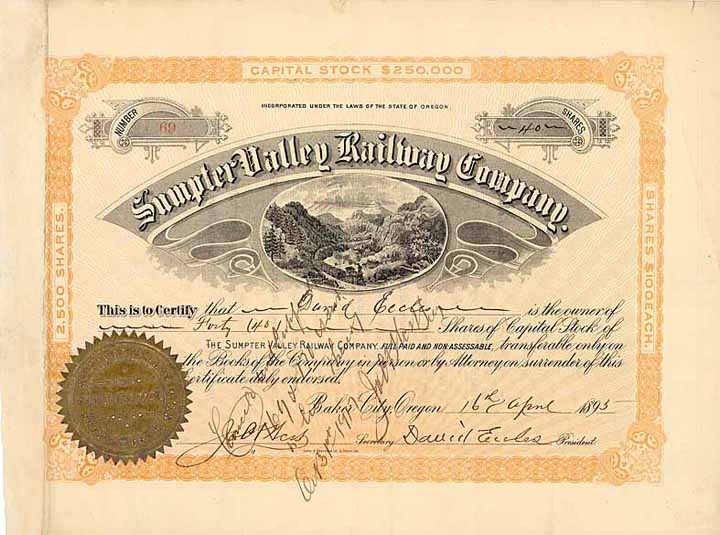 CAPITAL STOCK $250,000
INCORPORATED UNDER THE LAWS OF THE STATE OF OREGON.
NUMBER 69
SHARES 40
Sumpter Valley Railway Company.
2,500 SHARES.
SHARES $100 EACH.
This is to Certify that David Eccles is the owner of
Forty 40 Shares of Capital Stock of
THE SUMPTER VALLEY RAILWAY COMPANY, FULL PAID AND NON-ASSESSABLE, transferable only on
the Books of the Company in person or by Attorney on surrender of this
Certificate duly endorsed.
Baker City, Oregon 16th April 1895
Secretary David Eccles President.